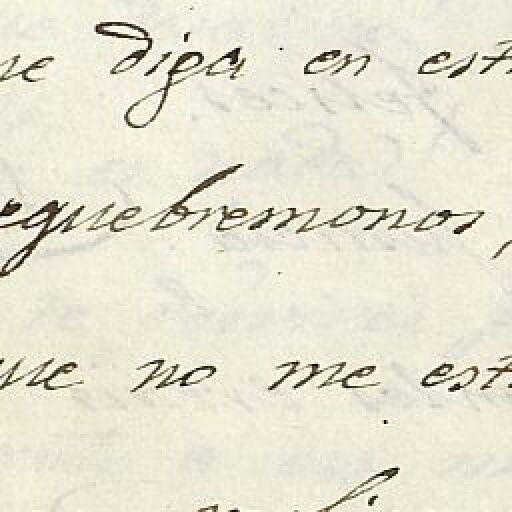 ue diga en est
equebremonos,
ue no me est